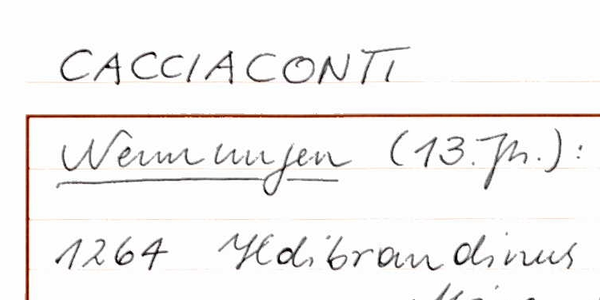 CACCIACONTI
Nennungen (13. Jh.):
1264 Ildibrandinus